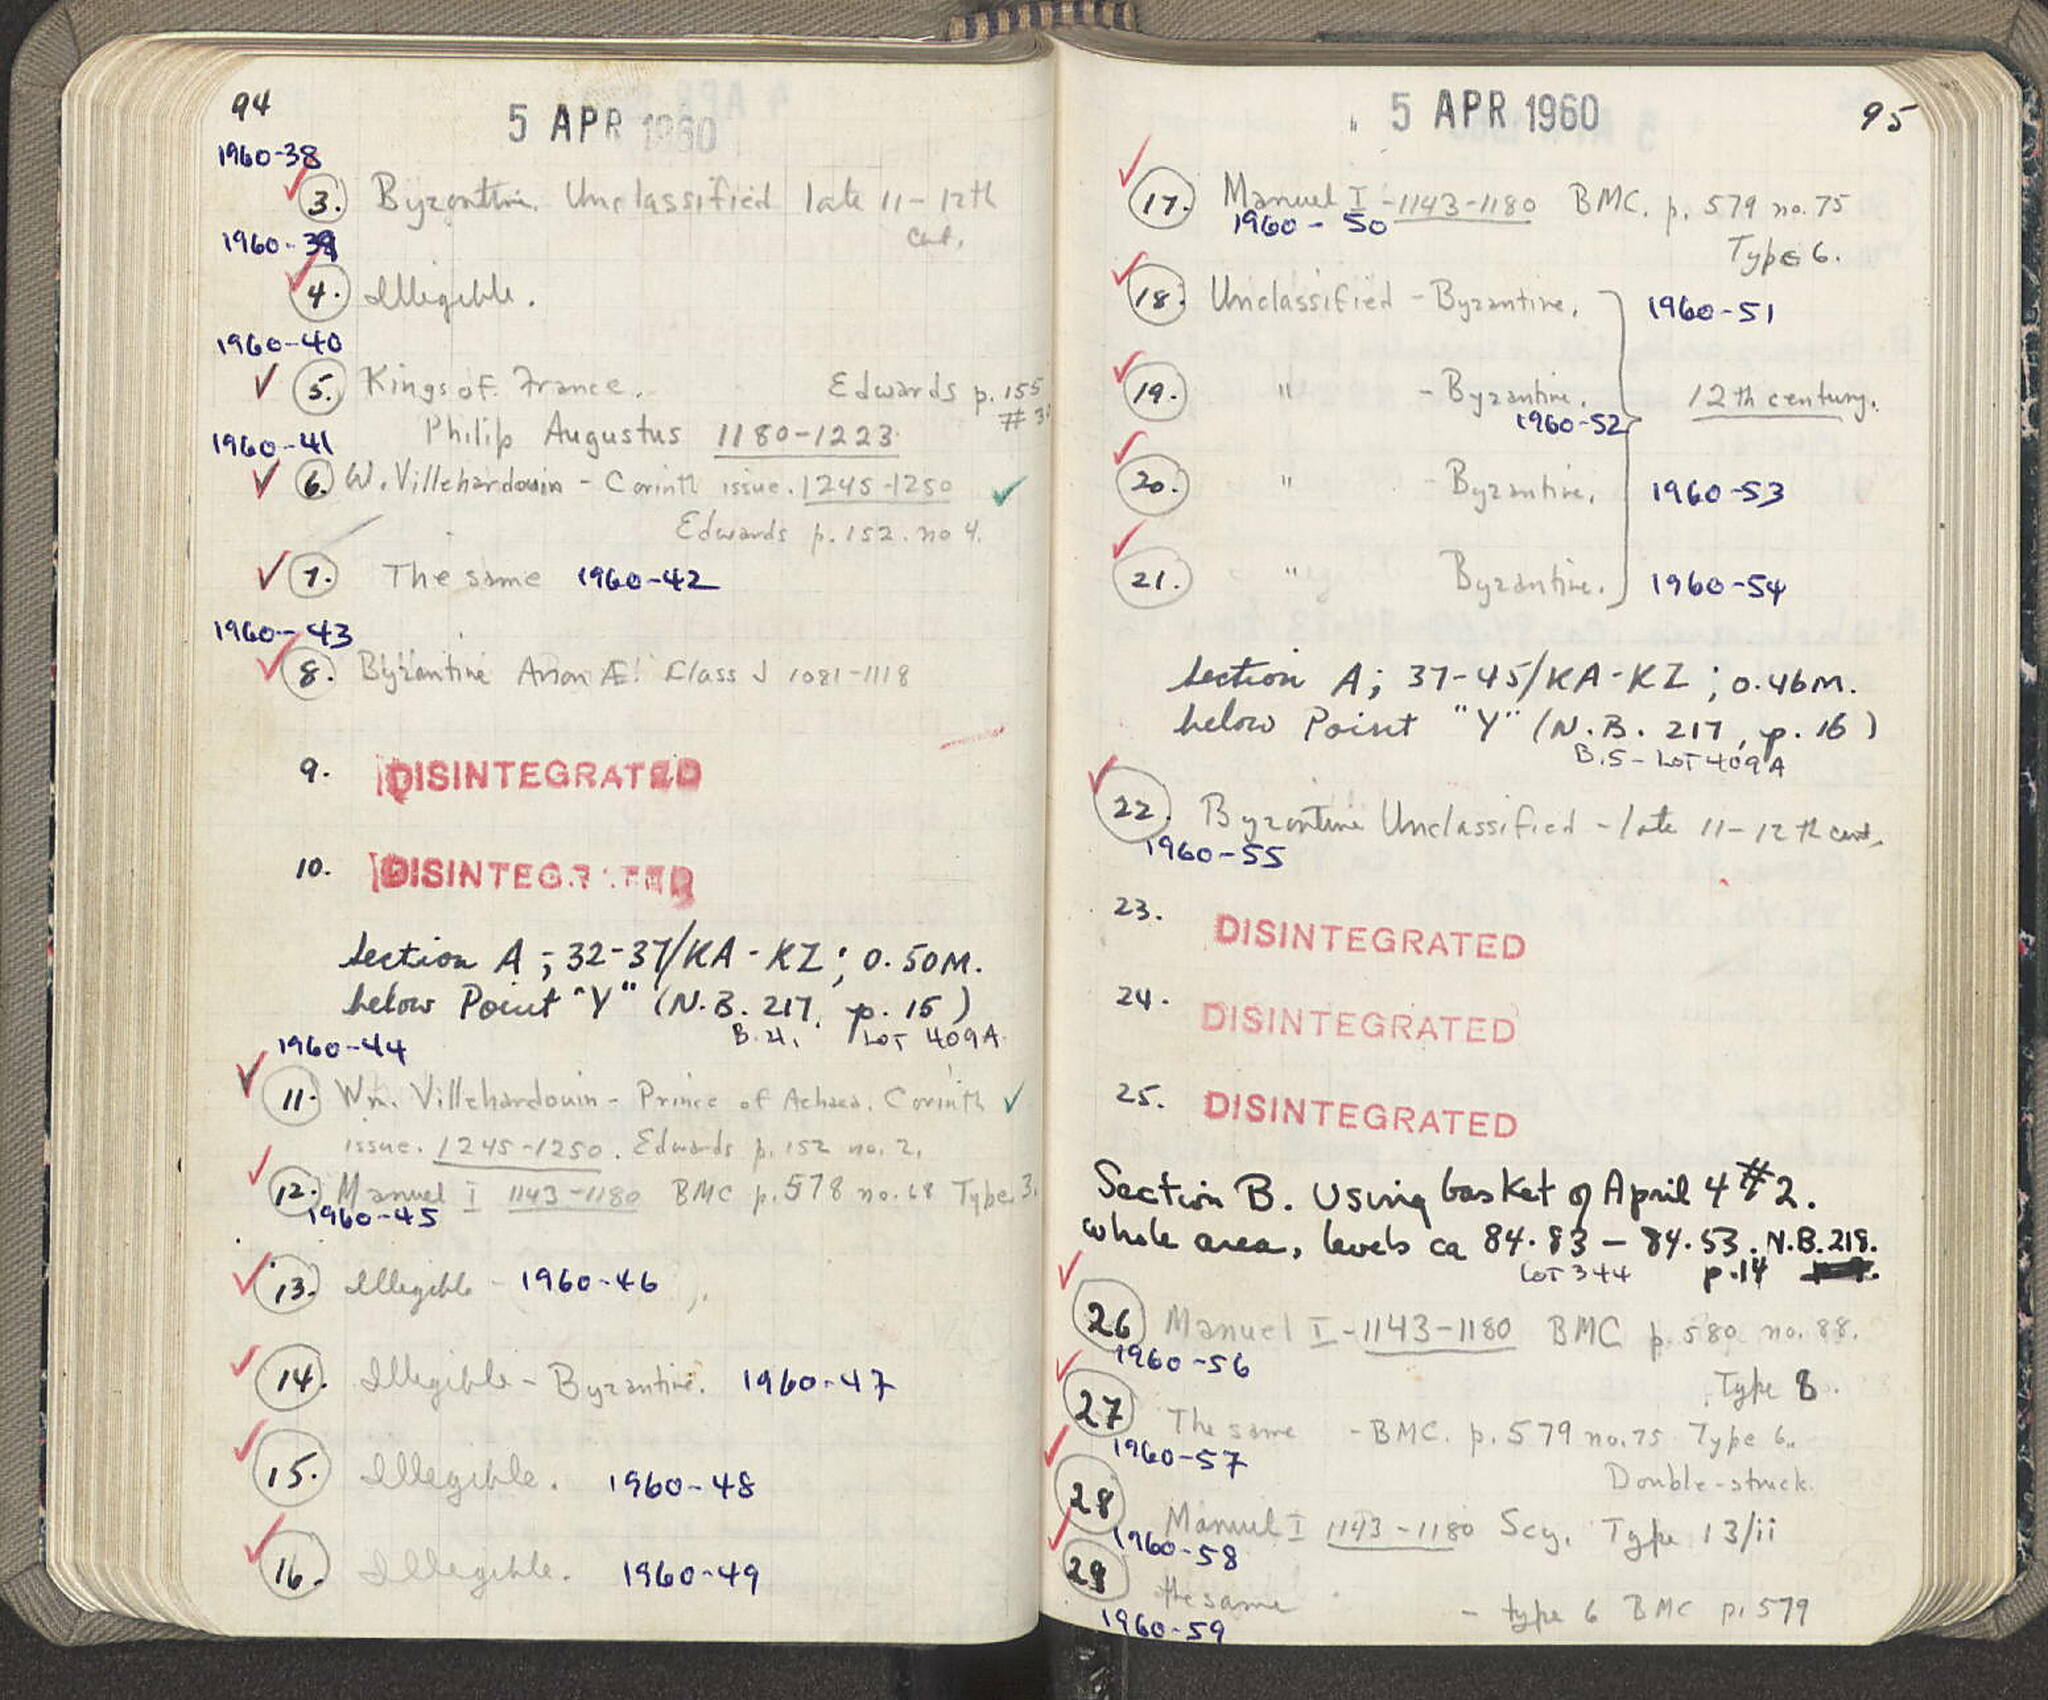 94
5 APR 1960
1960-38
3. Byzantine. Unclassified late 11-12th
cent.
1960-39
4. Illegible.
1960-40
5. Kings of France. Edwards p. 155
Philip Augustus 1180-1223
1960-41
6. W. Villehardouin - Corinth issue. 1245-1250
Edwards p. 152. no 4.
7. The same 1960-42
1960-43
8. Byzantine Anon Æ. Class J 1081-1118
9. DISINTEGRATED
10. DISINTEGRATED
Section A; 32-37/KA-KZ; 0.50M.
below Point "Y" (N.B. 217, p. 15)
B.4. LOT 409A
1960-44
11. Wm. Villehardouin - Prince of Achaea. Corinth
issue. 1245-1250. Edwards p. 152 no. 2.
12. Manuel I 1143-1180 BMC p. 578 no. 68 Type 3.
1960-45
13. Illegible - 1960-46
14. Illegible - Byzantine. 1960-47
15. Illegible. 1960-48
16. Illegible. 1960-49
5 APR 1960
95
17. Manuel I - 1143-1180 BMC. p. 579 no. 75
1960-50
Type 6.
18. Unclassified - Byzantine. 1960-51
19. " - Byzantine. 12th century.
1960-52
20. " - Byzantine. 1960-53
21. " Byzantine. 1960-54
Section A; 37-45/KA-KZ; 0.46M.
below Point "Y" (N.B. 217, p. 16)
B.5 - LOT 409A
22. Byzantine Unclassified - late 11-12th cent.
1960-55
23. DISINTEGRATED
24. DISINTEGRATED
25. DISINTEGRATED
Section B. Using basket of April 4 #2.
whole area, levels ca 84.83 - 84.53. N.B. 218.
LOT 344 p. 14
26 Manuel I - 1143-1180 BMC p. 580 no. 88.
1960-56
Type 8.
27 The same - BMC. p. 579 no. 75 Type 6.
1960-57
Double-struck.
28 Manuel I 1143-1180 Scy. Type 13/ii
1960-58
29 the same - type 6 BMC p. 579
1960-59